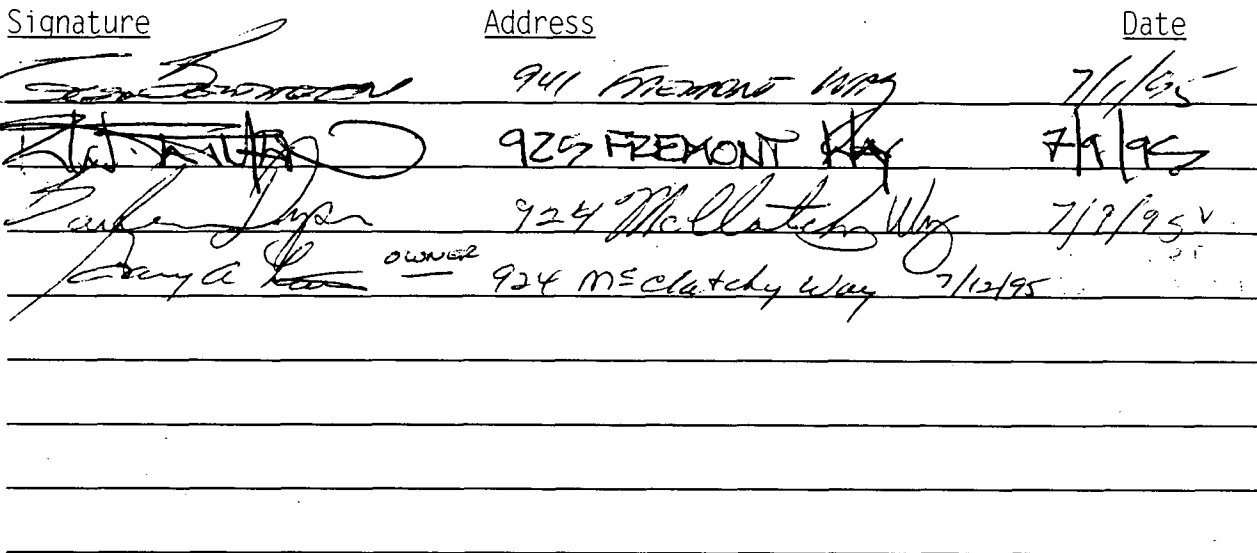 Signature Address Date
941 Fremont Way 7/1/95
925 FREMONT Way 7/9/95
Barbara 924 McClatchy Way 7/9/95
Gary A OWNER 924 McClatchy Way 7/12/95